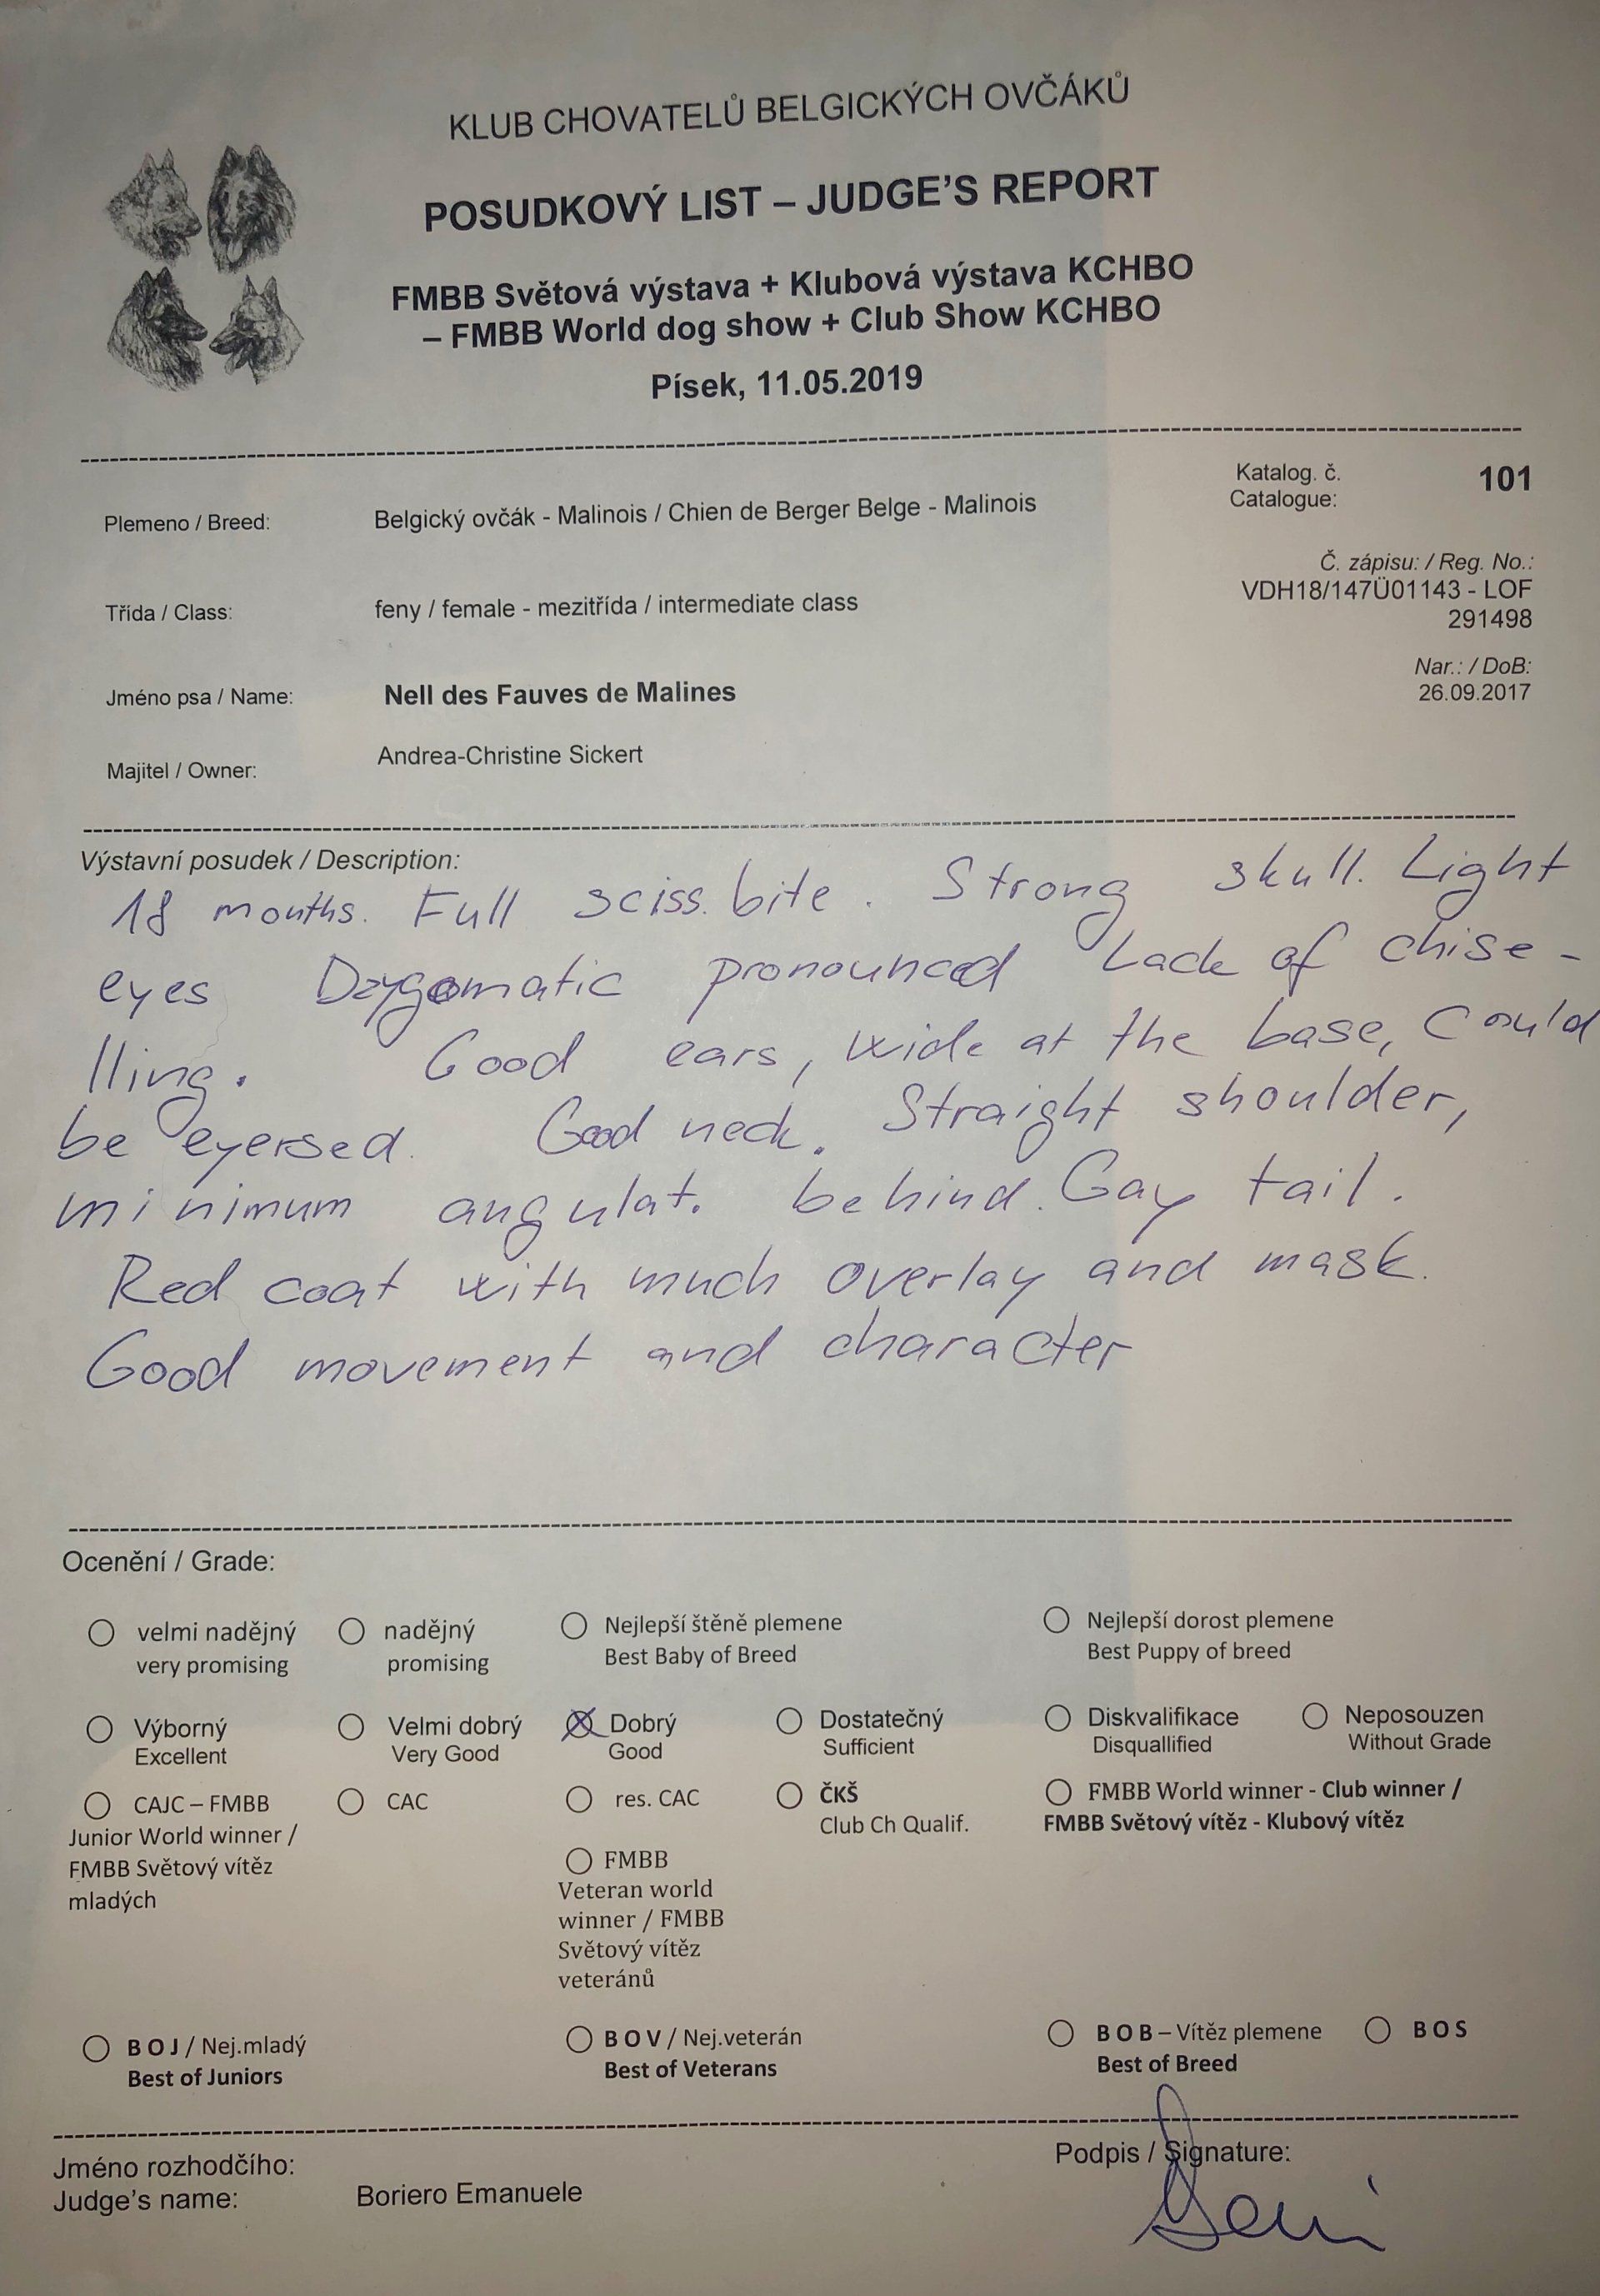 KLUB CHOVATELŮ BELGICKÝCH OVČÁKŮ
POSUDKOVÝ LIST – JUDGE'S REPORT
FMBB Světová výstava + Klubová výstava KCHBO
– FMBB World dog show + Club Show KCHBO
Písek, 11.05.2019
Katalog. č. 101
Catalogue:
Plemeno / Breed: Belgický ovčák - Malinois / Chien de Berger Belge - Malinois
Č. zápisu: / Reg. No.:
VDH18/147Ü01143 - LOF
291498
Třída / Class: feny / female - mezitřída / intermediate class
Nar.: / DoB:
26.09.2017
Jméno psa / Name: Nell des Fauves de Malines
Majitel / Owner: Andrea-Christine Sickert
Výstavní posudek / Description:
18 months. Full sciss. bite. Strong skull. Light
eyes pronounced Lack of chise-
lling. Good ears, wide at the base, Could
be Good neck. Straight shoulder,
minimum angulat. behind. Gay tail.
Red coat with much overlay and mask.
Good movement and character
Ocenění / Grade:
velmi nadějný nadějný Nejlepší štěně plemene Nejlepší dorost plemene
very promising promising Best Baby of Breed Best Puppy of breed
Výborný Velmi dobrý Dobrý Dostatečný Diskvalifikace Neposouzen
Excellent Very Good Good Sufficient Disquallified Without Grade
CAJC – FMBB CAC res. CAC ČKŠ FMBB World winner - Club winner /
Junior World winner / Club Ch Qualif. FMBB Světový vítěz - Klubový vítěz
FMBB Světový vítěz
mladých
FMBB
Veteran world
winner / FMBB
Světový vítěz
veteránů
B O J / Nej.mladý B O V / Nej.veterán B O B – Vítěz plemene B O S
Best of Juniors Best of Veterans Best of Breed
Jméno rozhodčího: Podpis / Signature:
Judge's name: Boriero Emanuele